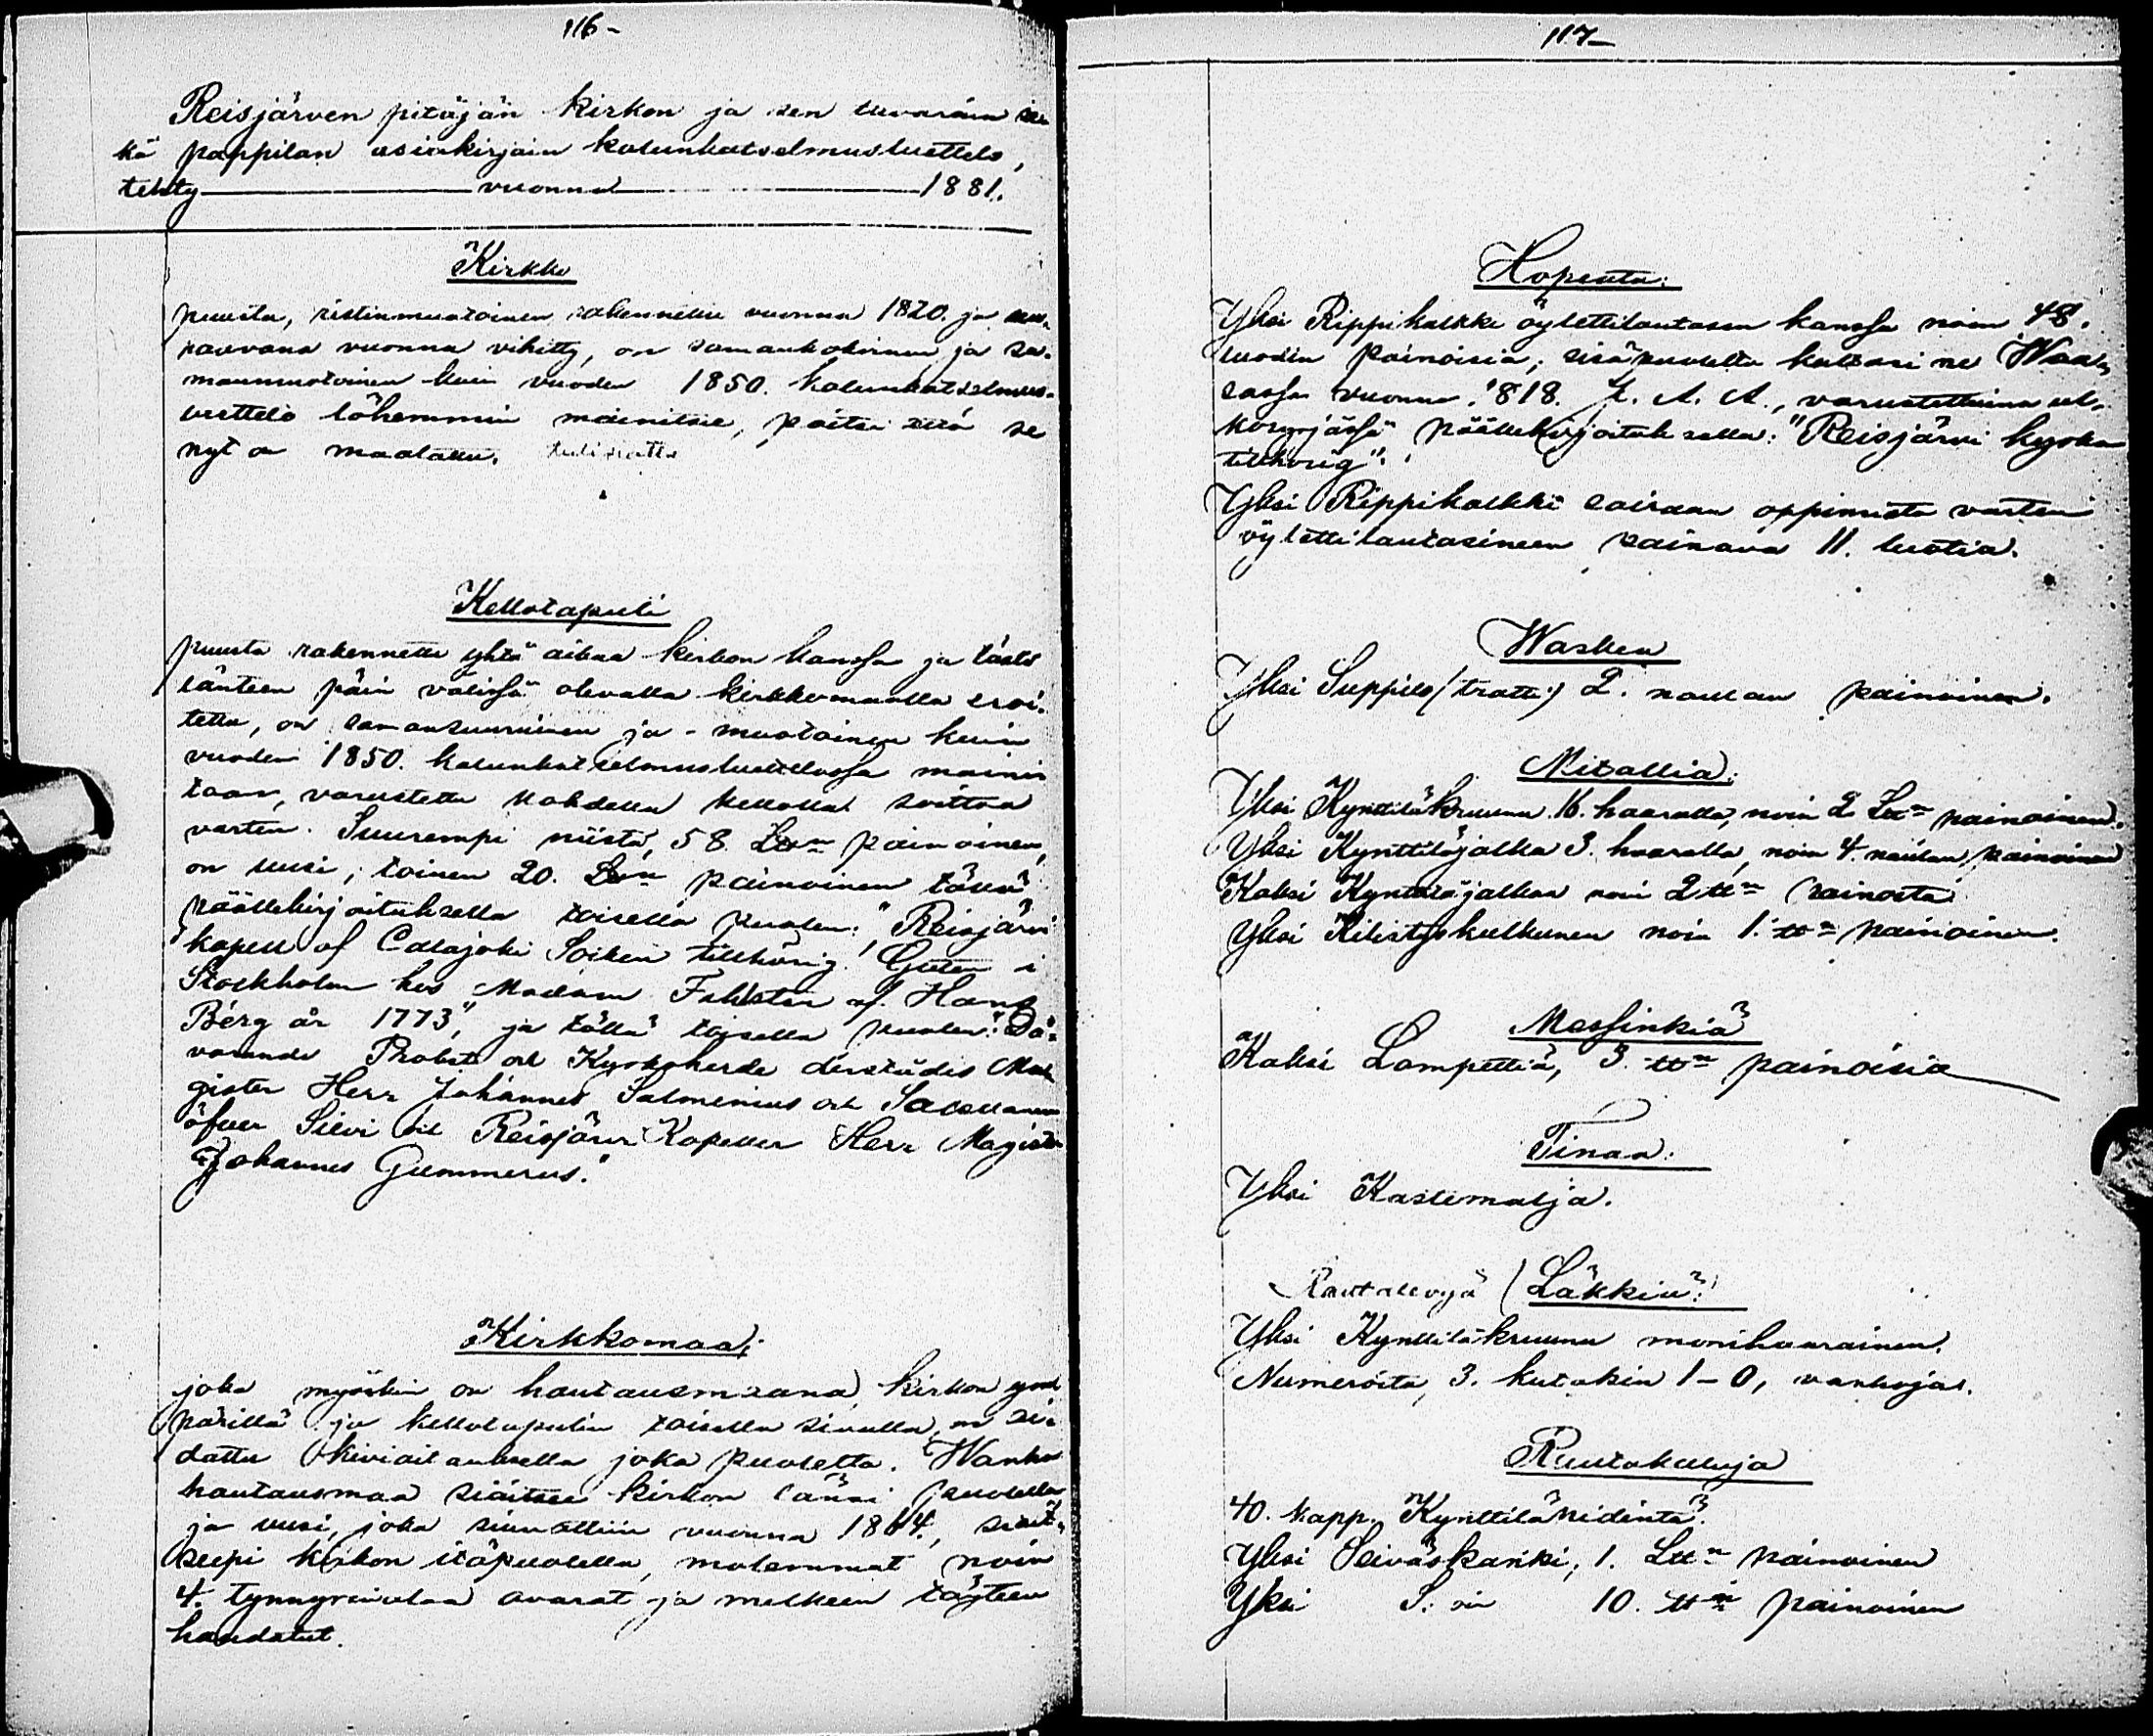 116-
Reisjärven pitäjän kirkon ja sen tavarain se-
kä pappilan asiakirjain kalunkatselmusluettelo,
tehty vuonna 1881.
Kirkko
puusta, ristinmuotoinen, rakennettu vuonna 1820. ja
vuonna vihitty, on samankokoinen ja sa-
manmuotoinen kuin vuoden 1850. kalunkatselmus-
luettelo lähemmin mainitsee, paitsi että se
nyt on maalattu.
Kellotapuli
puusta rakennettu yhtä aikaa kirkon kanssa ja tästä
länteen päin välissä olevalla kirkkomaalla eroi-
tettu, on samansuuruinen ja -muotoinen kuin
vuoden 1850. kalunkatselmusluettelossa maini-
taan, varustettu kahdella kellolla soittoa
varten. Suurempi niistä, 58. L℔n painoinen,
on uusi; toinen 20. L℔n painoinen tällä
päällekirjoituksella toisella puolen: "Reisjärvi
kapell af Calajoki Socken tillhörig. Guten i
Stockholm hos Madam Fahlsten af Hans
Berg år 1773", ja tällä toisella puolen: "Då-
varande Probst och Kyrkoherde därstädes Ma-
gister Herr Johannes Salmenius och Sacellanen
öfver Sievi och Reisjärvi Kapeller Herr Magister
Johannes Gummerus."
Kirkkomaa;
joka myöskin on hautausmaana, kirkon ym-
pärillä ja kellotapulin toisella sivulla, on
kiviaitauksella joka puolelta. Wanha
hautausmaa sijaitsee kirkon länsi puolella
ja uusi, joka vuonna 1864, sijait-
seepi kirkon itäpuolella, molemmat noin
4. tynnyrinalaa avarat ja melkeen täyteen
haudatut.
117-
Hopeata:
Yksi Rippikalkki öylettilautasen kanssa noin 48.
luodin painoisia; sisäpuolelta kullasi ne Waa-
sassa vuonna 1818. A. A., varustettuina ul-
kosyrjässä päällekirjoituksella: "Reisjärvi kyrka
tillhörig".
Yksi Rippikalkki sairaan oppimista varten
öylettilautasineen painava 11. luotia.
Wasken
Yksi Suppilo (tratti) 2. naulan painoinen.
Mitallia:
Yksi Kynttiläkruunu 16. haaralla, noin 2 L℔n painoinen.
Yksi Kynttiläjalka 3. haaralla, noin 4. naulan painoinen
Kaksi Kynttiläjalkaa noin 2 ℔n painosta
Yksi Kilistyskulkunen noin 1. ℔n painoinen.
Messinkiä
Kaksi Lampettia, 3. ℔n painoisia
Tinaa:
Yksi Kastemalja.
Rautalevyä (Läkkiä:)
Yksi Kynttiläkruunu monihaarainen.
Numeroita, 3. kutakin 1-0, vanhoja.
Rautakaluja
40. kapp. Kynttilänidintä.
Yksi Seiväskanki, 1. L℔n painoinen
Yksi S: oin 10. ℔n painoinen